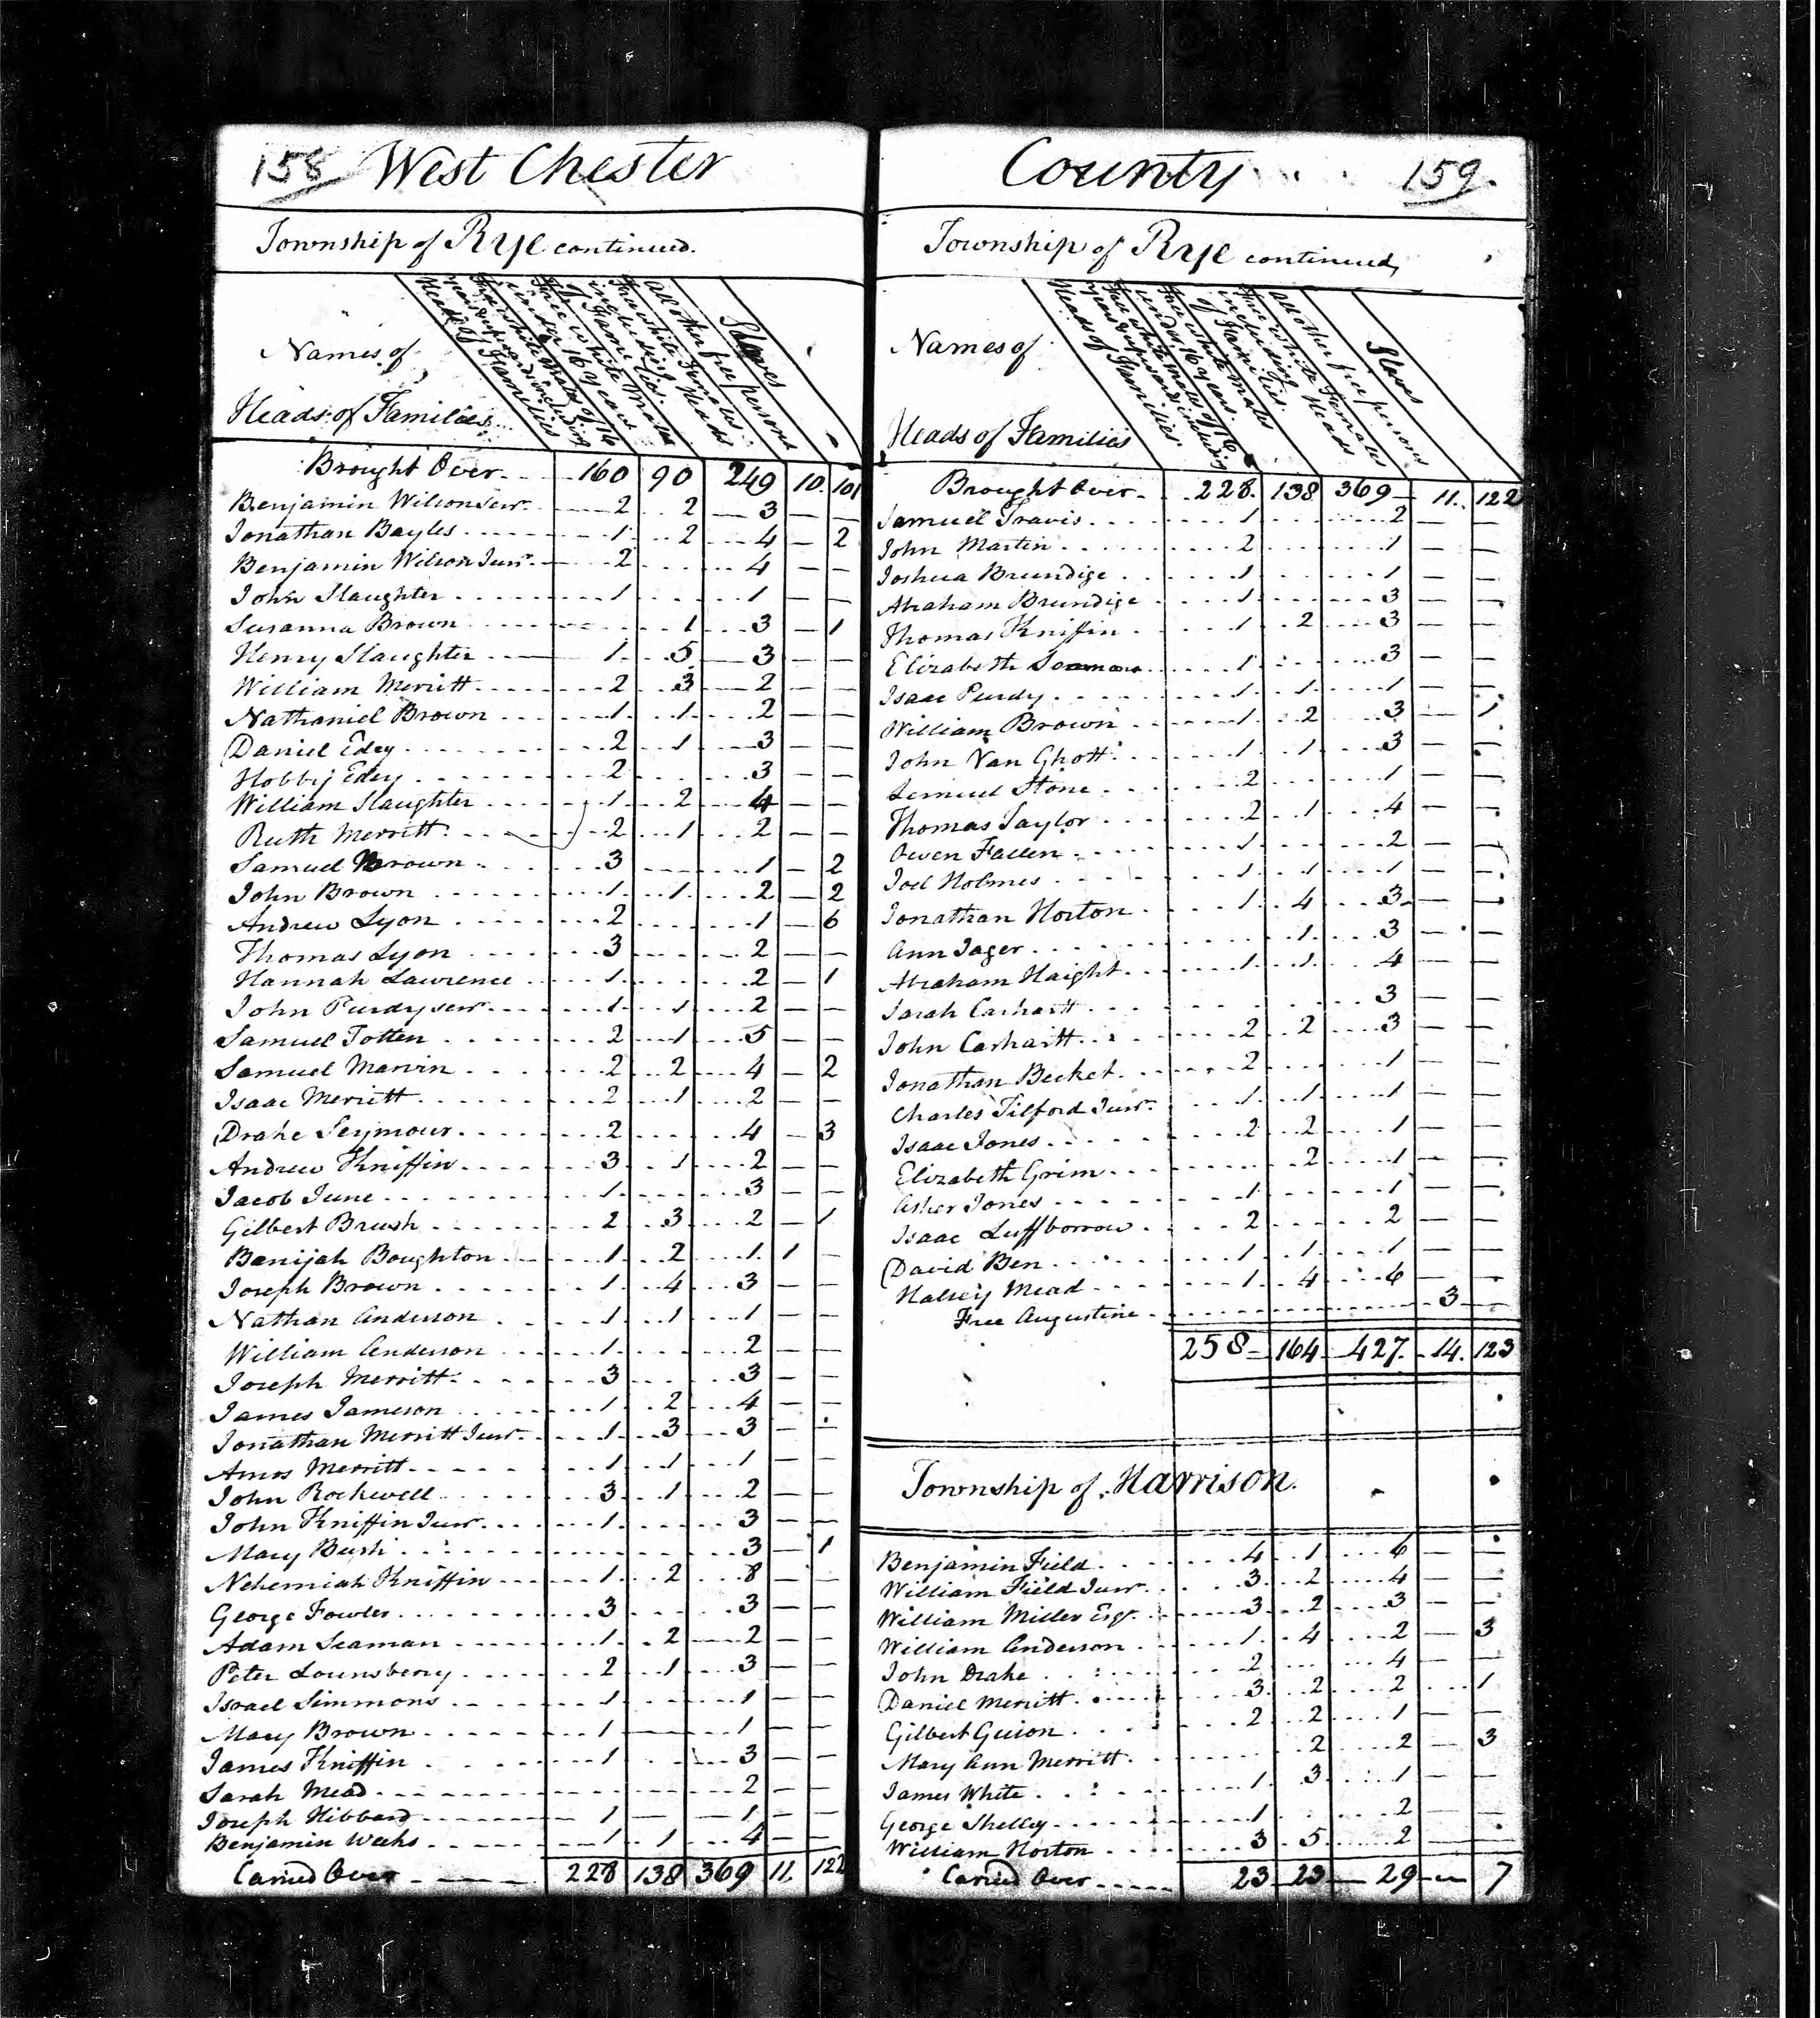 158 West Chester
Township of Rye continued.
Names of
Heads of Families
Free white Males of 16 years upward including Heads of Families
Free white Males under 16 years
Free white Females including Heads of Families.
All other free persons
Slaves
Brought Over 160 90 249 10. 101
Benjamin Wilson Senr. 2 2 3 — —
Jonathan Bayles 1 2 4 — 2
Benjamin Wilson Junr. 2 4 — —
John Slaughter 1 1 — —
Susanna Brown 1 3 — 1
Henry Slaughter 1 5 3 — —
William Merritt 2 3 2 — —
Nathaniel Brown 1 1 2 — —
Daniel Edey 2 1 3 — —
Hobby Edey 2 3 — —
William Slaughter 1 2 4 — —
Ruth Merritt 2 1 2 — —
Samuel Brown 3 1 — 2
John Brown 1 1 2 — 2
Andrew Lyon 2 1 — 6
Thomas Lyon 3 2 — —
Hannah Lawrence 1 2 — 1
John Purdy senr. 1 1 2 — —
Samuel Totten 2 1 5 — —
Samuel Marvin 2 2 4 — 2
Isaac Merritt 2 1 2 — —
Drake Seymour 2 4 — 3
Andrew Kniffin 3 1 2 — —
Jacob June 1 3 — —
Gilbert Brush 2 3 2 — 1
Benijah Boughton 1 2 1 1 —
Joseph Brown 1 4 3 — —
Nathan Anderson 1 1 1 — —
William Anderson 1 2 — —
Joseph Merritt 3 3 — —
James Jameson 1 2 4 — —
Jonathan Merritt Junr. 1 3 3 — —
Amos Merritt 1 1 1 — —
John Rockwell 3 1 2 — —
John Kniffin Junr. 1 3 — —
Mary Bush 3 — 1
Nehemiah Kniffin 1 2 8 — —
George Fowler 3 3 — —
Adam Seaman 1 2 2 — —
Peter Lounsberry 2 1 3 — —
Israel Simmons 1 1 — —
Mary Brown 1 — 1 — —
James Kniffin 1 3 — —
Sarah Mead 2 — —
Joseph Hibbard 1 — 1 — —
Benjamin Weeks 1 1 4 — —
Carried Over 228 138 369 11. 122
County 159.
Township of Rye continued,
Names of
Heads of Families
Free white males of 16 years upward including Heads of Families.
Free white Males under 16 years.
Free white Females including Heads of Families.
All other free persons
Slaves
Brought Over 228. 138 369 11. 122
Samuel Travis 1 2 — —
John Martin 2 1 — —
Joshua Brundige 1 1 — —
Abraham Brundige 1 3 — —
Thomas Kniffin 1 2 3 — —
Elizabeth Seaman 1 3 — —
Isaac Purdy 1 1 1 — —
William Brown 1 2 3 — 1
John Van Ghott 1 1 3 — —
Lemuel Stone 2 1 — —
Thomas Taylor 2 1 4 — —
Owen Fallen 1 2 — —
Joel Holmes 1 1 1 — —
Jonathan Horton 1 4 3 — —
Ann Jager 1 3 — —
Abraham Haight 1 1 4 — —
Sarah Carhartt 3 — —
John Carhartt 2 2 3 — —
Jonathan Becket 2 1 — —
Charles Tilford Junr. 1 1 1 — —
Isaac Jones 2 2 1 — —
Elizabeth Grim 2 1 — —
Asher Jones 1 1 — —
Isaac Luffborrow 2 2 — —
David Ben 1 1 1 — —
Halsey Mead 1 4 6 — —
Free Augustine 3 —
258 164 427. 14. 123
Township of Harrison.
Benjamin Field 4 1 6 — —
William Field Junr. 3 2 4 — —
William Miller Esqr. 3 2 3 — —
William Anderson 1 4 2 — 3
John Drake 2 4 — —
Daniel Merritt 3 2 2 1
Gilbert Guion 2 2 1 — —
Mary Ann Merritt 2 2 — 3
James White 1 3 1 — —
George Shelly 1 2 — —
William Horton 3 5 2 — —
Carried Over 23 23 29 — 7